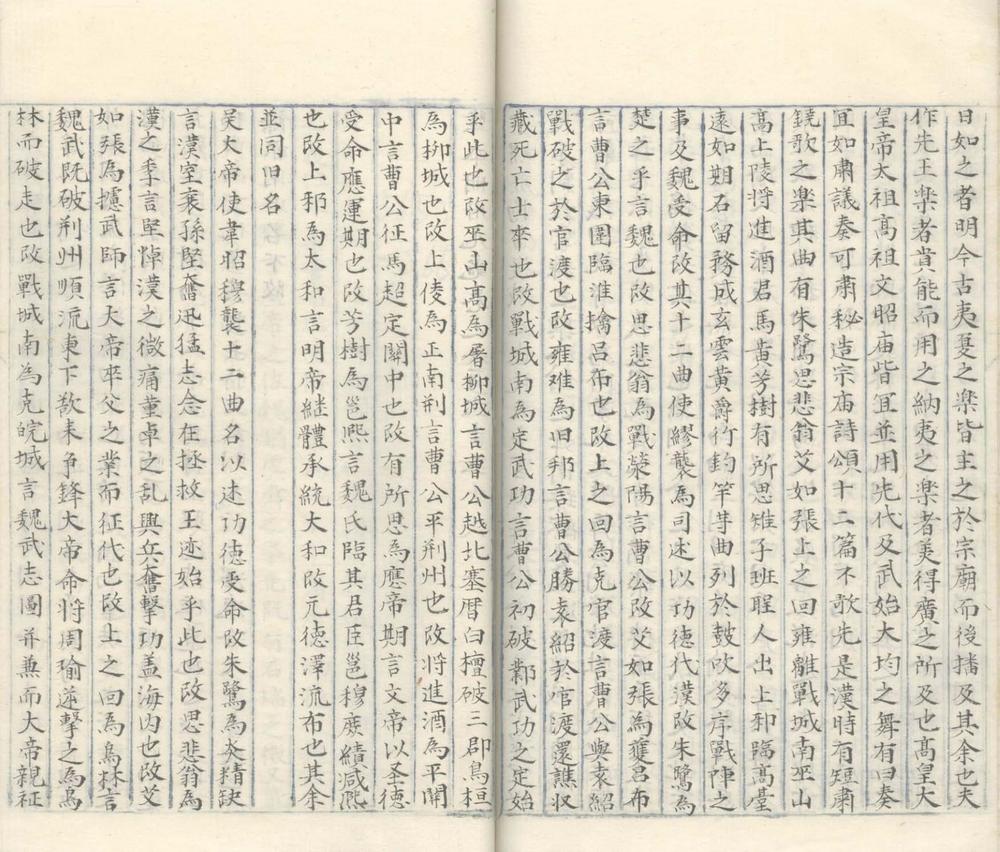 日如之者明今古夷夏之楽皆主之於宗廟而後播及其余也夫
作先王楽者貴能而用之納夷之楽者美得廣之所及也髙皇大
皇帝太祖髙祖文昭庙皆宜並用先代及武始大均之舞有曰奏
宜如肅議奏可肅秘造宗庙詩頌十二篇不歌先是漢時有短肅
鐃歌之楽其曲有朱鷺思悲翁艾如張上之回雍離戰城南巫山
髙上陵将進酒君馬黄芳樹有所思雉子班聖人出上邪臨髙臺
遠如期石留務成玄雲黄爵竹釣竿䓁曲列於鼓吹多序戰陣之
事及魏受命改其十二曲使繆襲為司述以功德代漢改朱鷺為
楚之乎言魏也改思悲翁為戰滎陽言曹公改艾如張為𫉬吕布
言曹公東圍臨淮擒吕布也改上之回為克官渡言曹公與袁紹
戰破之於官渡也改雍难為旧邦言曹公勝袁紹於官渡還譙収
藏死亡士卒也改戰城南為定武功言曹公初破鄴武功之定始
乎此也改巫山髙為屠柳城言曹公越北塞暦白檀破三郡鳥桓
為栁城也改上倰為正南荆言曹公平荆州也改将進酒為平関
中言曹公征馬超定関中也改有所思為應帝期言文帝以圣德
受命應運期也改芳樹為邕熙言魏氏臨其君臣邕穆庶績咸熙
也改上邪為太和言明帝継體承統大和改元德澤流布也其余
並同旧名
吴大帝使韋昭穆襲十二曲名以述功德受命改朱鷺為炎精缺
言漢室衰孫堅奮迅猛志念在拯救王迹始乎此也改思悲翁為
漢之季言堅悼漢之微痛董卓之乱興兵奮擊功盖海内也改艾
如張為攄武師言大帝卒父之業而征代也改上之回為烏林言
魏武既破荆州順流東下欲来争鋒大帝命将周瑜逆擊之為烏
林而破走也改戰城南為克皖城言魏武志圖并兼而大帝親征